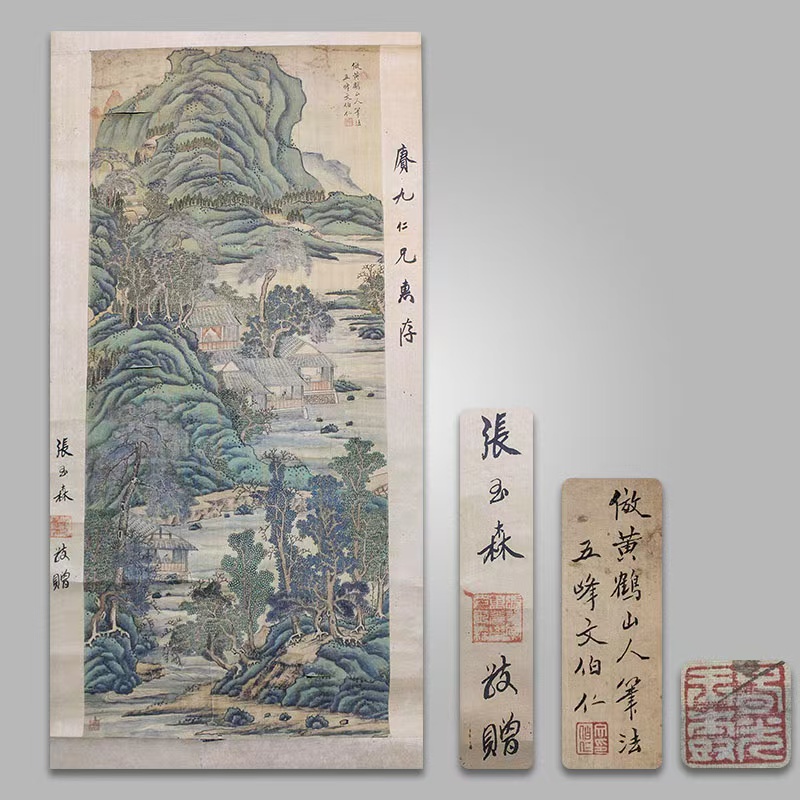 倣黄鶴山人筆法
五峰文伯仁
賡九仁兄惠存
張玉森
敬贈
張玉森
敬贈
倣黄鶴山人筆法
五峰文伯仁